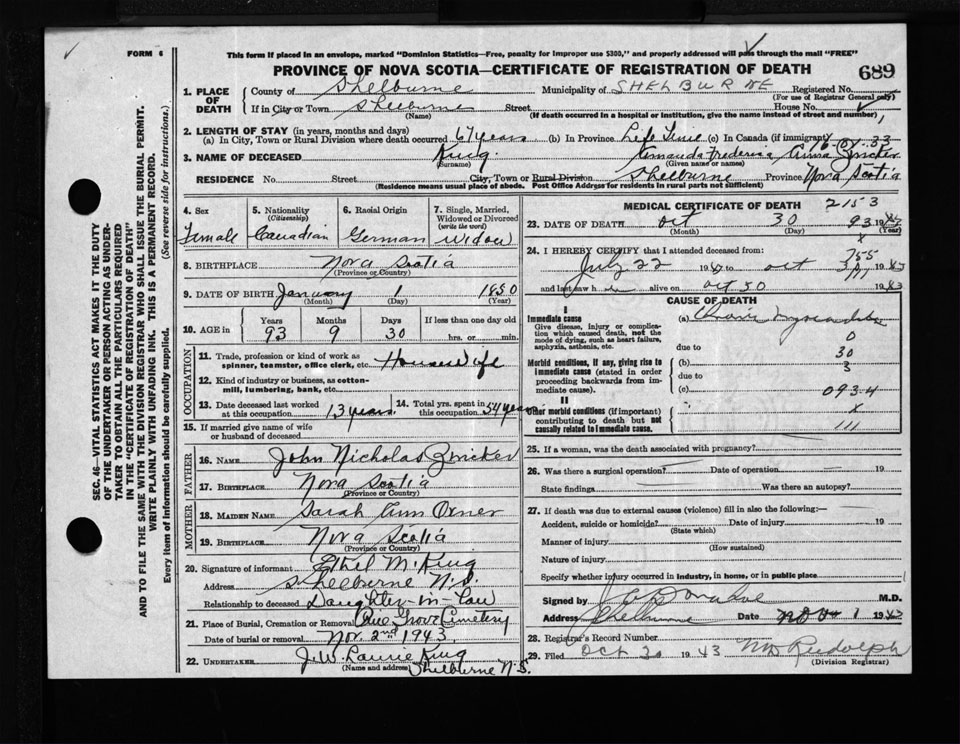 FORM 6
This form if placed in an envelope, marked "Dominion Statistics—Free, penalty for improper use $300," and properly addressed will pass through the mail "FREE"
PROVINCE OF NOVA SCOTIA—CERTIFICATE OF REGISTRATION OF DEATH
689
SEC. 46—VITAL STATISTICS ACT MAKES IT THE DUTY
OF THE UNDERTAKER OR PERSON ACTING AS UNDER-
TAKER TO OBTAIN ALL THE PARTICULARS REQUIRED
IN THE "CERTIFICATE OF REGISTRATION OF DEATH"
AND TO FILE THE SAME WITH THE DIVISION REGISTRAR WHO SHALL ISSUE THE BURIAL PERMIT.
WRITE PLAINLY WITH UNFADING INK. THIS IS A PERMANENT RECORD.
Every item of information should be carefully supplied. (See reverse side for instructions.)
1. PLACE OF DEATH
County of Shelburne Municipality of SHELBURNE Registered No.
(For use of Registrar General only)
If in City or Town Shelburne Street House No.
(Name) (If death occurred in a hospital or institution, give the name instead of street and number)
2. LENGTH OF STAY (in years, months and days)
(a) In City, Town or Rural Division where death occurred 67 years (b) In Province Life Time (c) In Canada (if immigrant)
3. NAME OF DECEASED King Amanda Frederica Zwicker
(Surname) (Given name or names)
RESIDENCE No. Street City, Town or Rural Division Shelburne Province Nova Scotia
(Residence means usual place of abode. Post Office Address for residents in rural parts not sufficient)
4. Sex Female
5. Nationality (Citizenship) Canadian
6. Racial Origin German
7. Single, Married, Widowed or Divorced (write the word) Widow
8. BIRTHPLACE Nova Scotia
(Province or Country)
9. DATE OF BIRTH January 1 1850
(Month) (Day) (Year)
10. AGE in Years 93 Months 9 Days 30 If less than one day old hrs. or min.
OCCUPATION
11. Trade, profession or kind of work as spinner, teamster, office clerk, etc. Housewife
12. Kind of industry or business, as cotton-mill, lumbering, bank, etc.
13. Date deceased last worked at this occupation 13 years
14. Total yrs. spent in this occupation 54 years
15. If married give name of wife or husband of deceased
FATHER
16. NAME John Nicholas Zwicker
17. BIRTHPLACE Nova Scotia
(Province or Country)
MOTHER
18. MAIDEN NAME Sarah Ann Oxner
19. BIRTHPLACE Nova Scotia
(Province or Country)
20. Signature of informant Ethel M. King
Address Shelburne N.S.
Relationship to deceased Daughter-in-Law
21. Place of Burial, Cremation or Removal Pine Grove Cemetery
Date of burial or removal Nov. 2nd 1943
22. UNDERTAKER J. W. Laurie King
(Name and address) Shelburne N.S.
MEDICAL CERTIFICATE OF DEATH 2153
23. DATE OF DEATH Oct 30 1943
(Month) (Day) (Year)
24. I HEREBY CERTIFY that I attended deceased from:
July 22 19 to Oct 30 1943
and last saw her alive on Oct 30 1943
CAUSE OF DEATH
I
Immediate cause
Give disease, injury or complication which caused death, not the mode of dying, such as heart failure, asphyxia, asthenia, etc.
(a) Chronic
due to
Morbid conditions, if any, giving rise to immediate cause (stated in order proceeding backwards from immediate cause).
(b)
due to
(c)
0
30
3
093-4
X
111
II
Other morbid conditions (if important) contributing to death but not causally related to immediate cause.
25. If a woman, was the death associated with pregnancy?
26. Was there a surgical operation? Date of operation 19
State findings Was there an autopsy?
27. If death was due to external causes (violence) fill in also the following:—
Accident, suicide or homicide? Date of injury 19
(State which)
Manner of injury
(How sustained)
Nature of injury
Specify whether injury occurred in industry, in home, or in public place
Signed by M.D.
Address Shelburne Date Nov 1 1943
28. Registrar's Record Number
29. Filed Oct 30 1943 Rudolph
(Division Registrar)